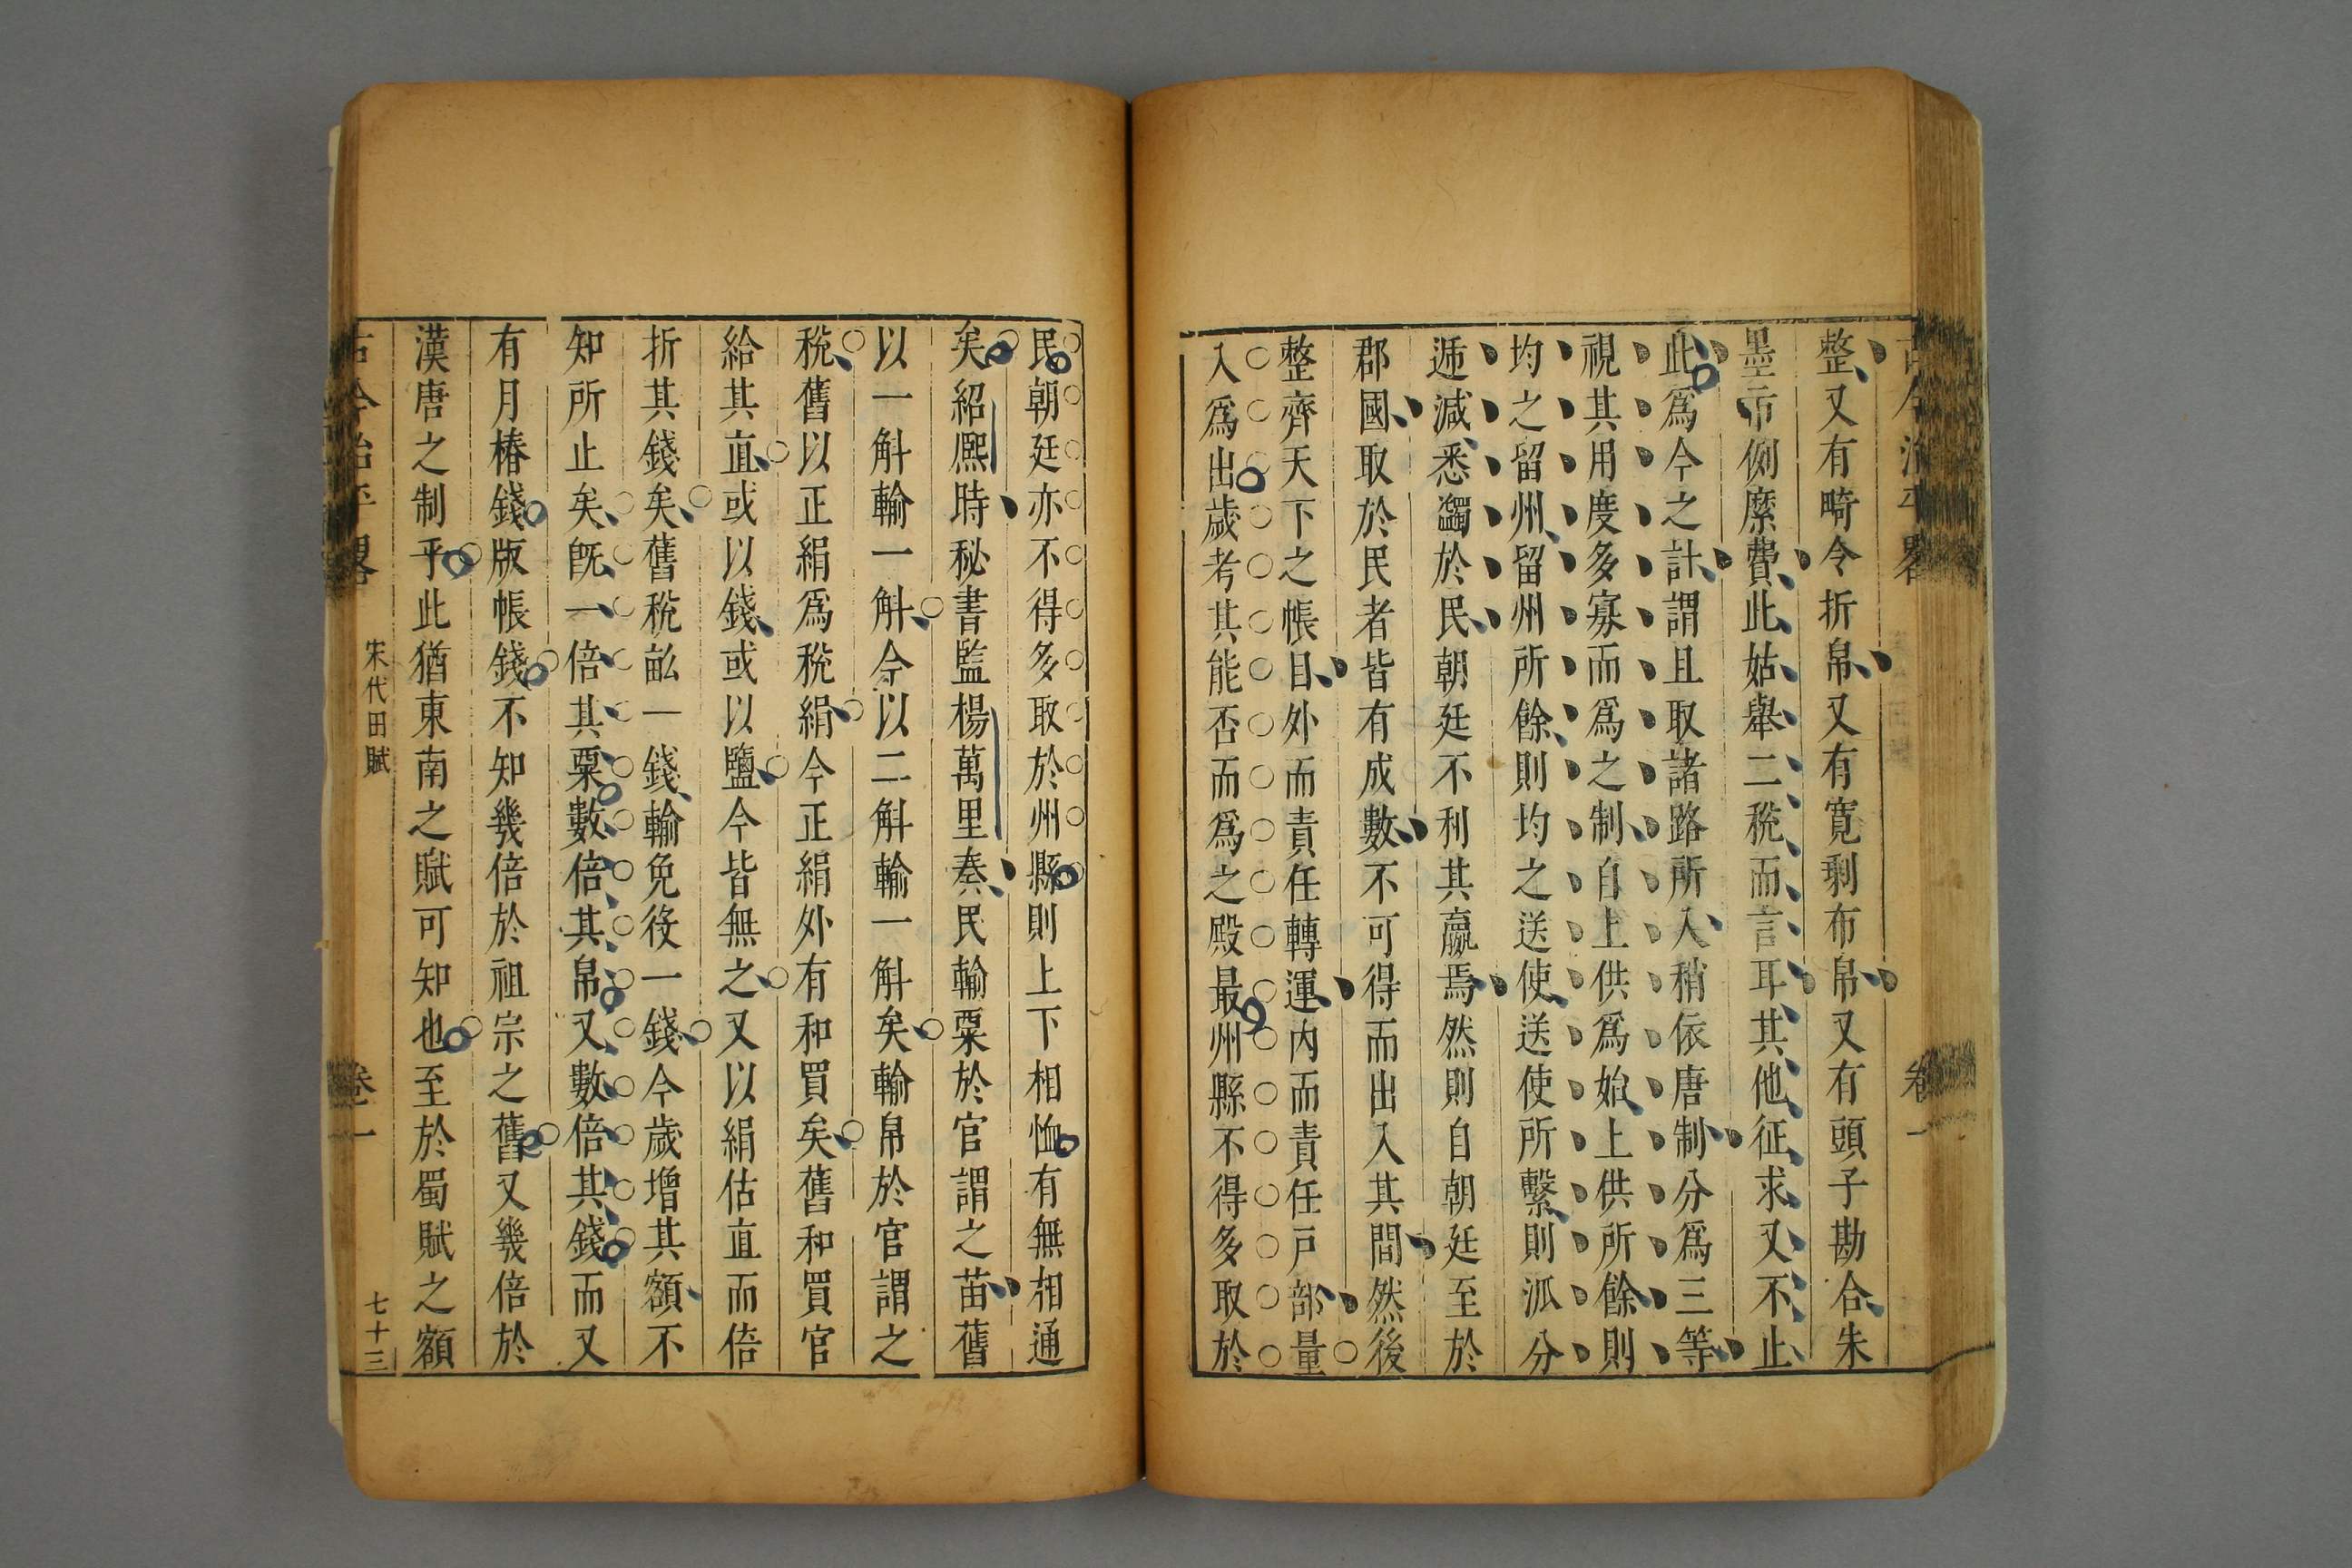 整又有畸令折帛又有寛剩布帛又有頭子勘合朱
墨市側縻費此姑舉二稅而言耳其他征求又不止
此爲今之計謂且取諸路所入稍依唐制分爲三等
視其用度多寡而爲之制自上供爲始上供所餘則
均之留州留州所餘則均之送使送使所繫則派分
逓減悉蠲於民朝廷不利其贏焉然則自朝廷至於
郡國取於民者皆有成數不可得而出入其間然後
整齊天下之帳目外而責任轉運內而責任戸部量
入爲出歲考其能否而爲之殿最州縣不得多取於
民朝廷亦不得多取於州縣則上下相恤有無相通
矣紹熈時秘書監楊萬里奏民輸粟於官謂之苗舊
以一斛輸一斛今以二斛輸一斛矣輸帛於官謂之
稅舊以正絹爲稅絹今正絹外有和買矣舊和買官
給其直或以錢或以鹽今皆無之又以絹估直而倍
折其錢矣舊稅畝一錢輸免役一錢今歲增其額不
知所止矣旣一倍其粟數倍其帛又數倍其錢而又
有月樁錢版帳錢不知幾倍於祖宗之舊又幾倍於
漢唐之制乎此猶東南之賦可知也至於蜀賦之額
古今治平畧 宋代田賦 卷一 七十三